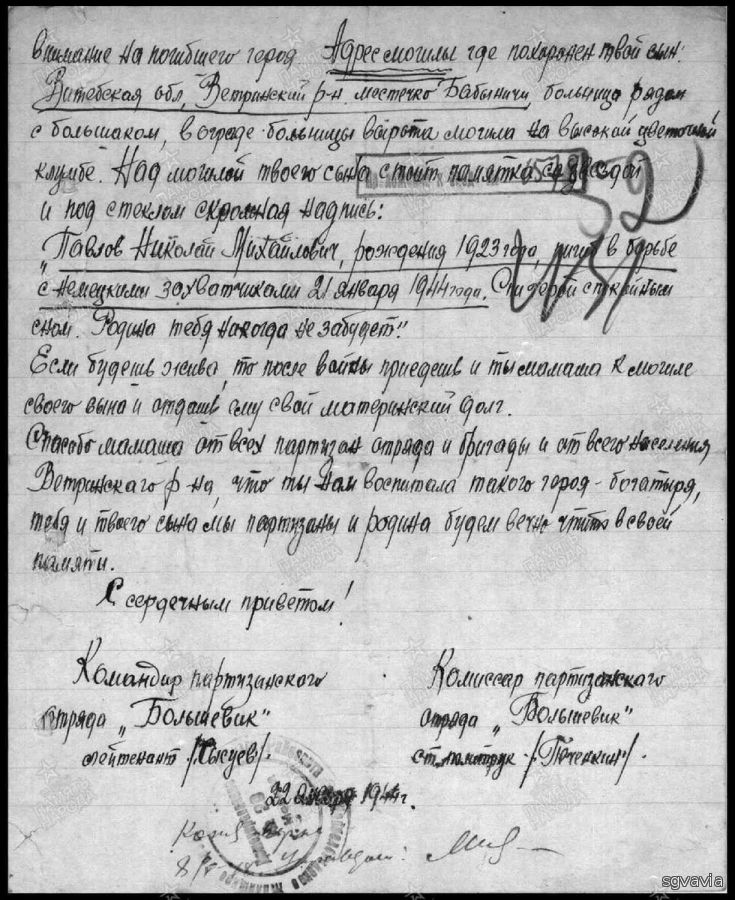 внимание на погибшего героя. Адрес могилы где похоронен твой сын:
Витебская обл, Ветринский р-н. местечко Бабыничи, больница рядом
с большаком, в ограде больницы ворота могила на высокой цветочной
клумбе. Над могилой твоего сына стоит памятка со звездой
и под стеклом скромная надпись:
„Павлов Николай Михайлович, рождения 1923 года, погиб в борьбе
с немецкими захватчиками 21 января 1944 года. Спи герой спокойным
сном. Родина тебя никогда не забудет."
Если будешь жива, то после войны приедешь и ты мамаша к могиле
своего сына и отдашь ему свой материнский долг.
Спасибо мамаша от всех партизан отряда и бригады и от всего населения
Ветринскаго р-на, что ты нам воспитала такого героя-богатыря,
тебя и твоего сына мы партизаны и родина будем вечно чтить в своей
памяти.
С сердечным приветом!
Командир партизанского
отряда „Большевик"
лейтенант /Сысуев/.
Комиссар партизанского
отряда „Большевик"
ст. политрук /Печенкин/.
22 января 1944 г.
52
sgvavia